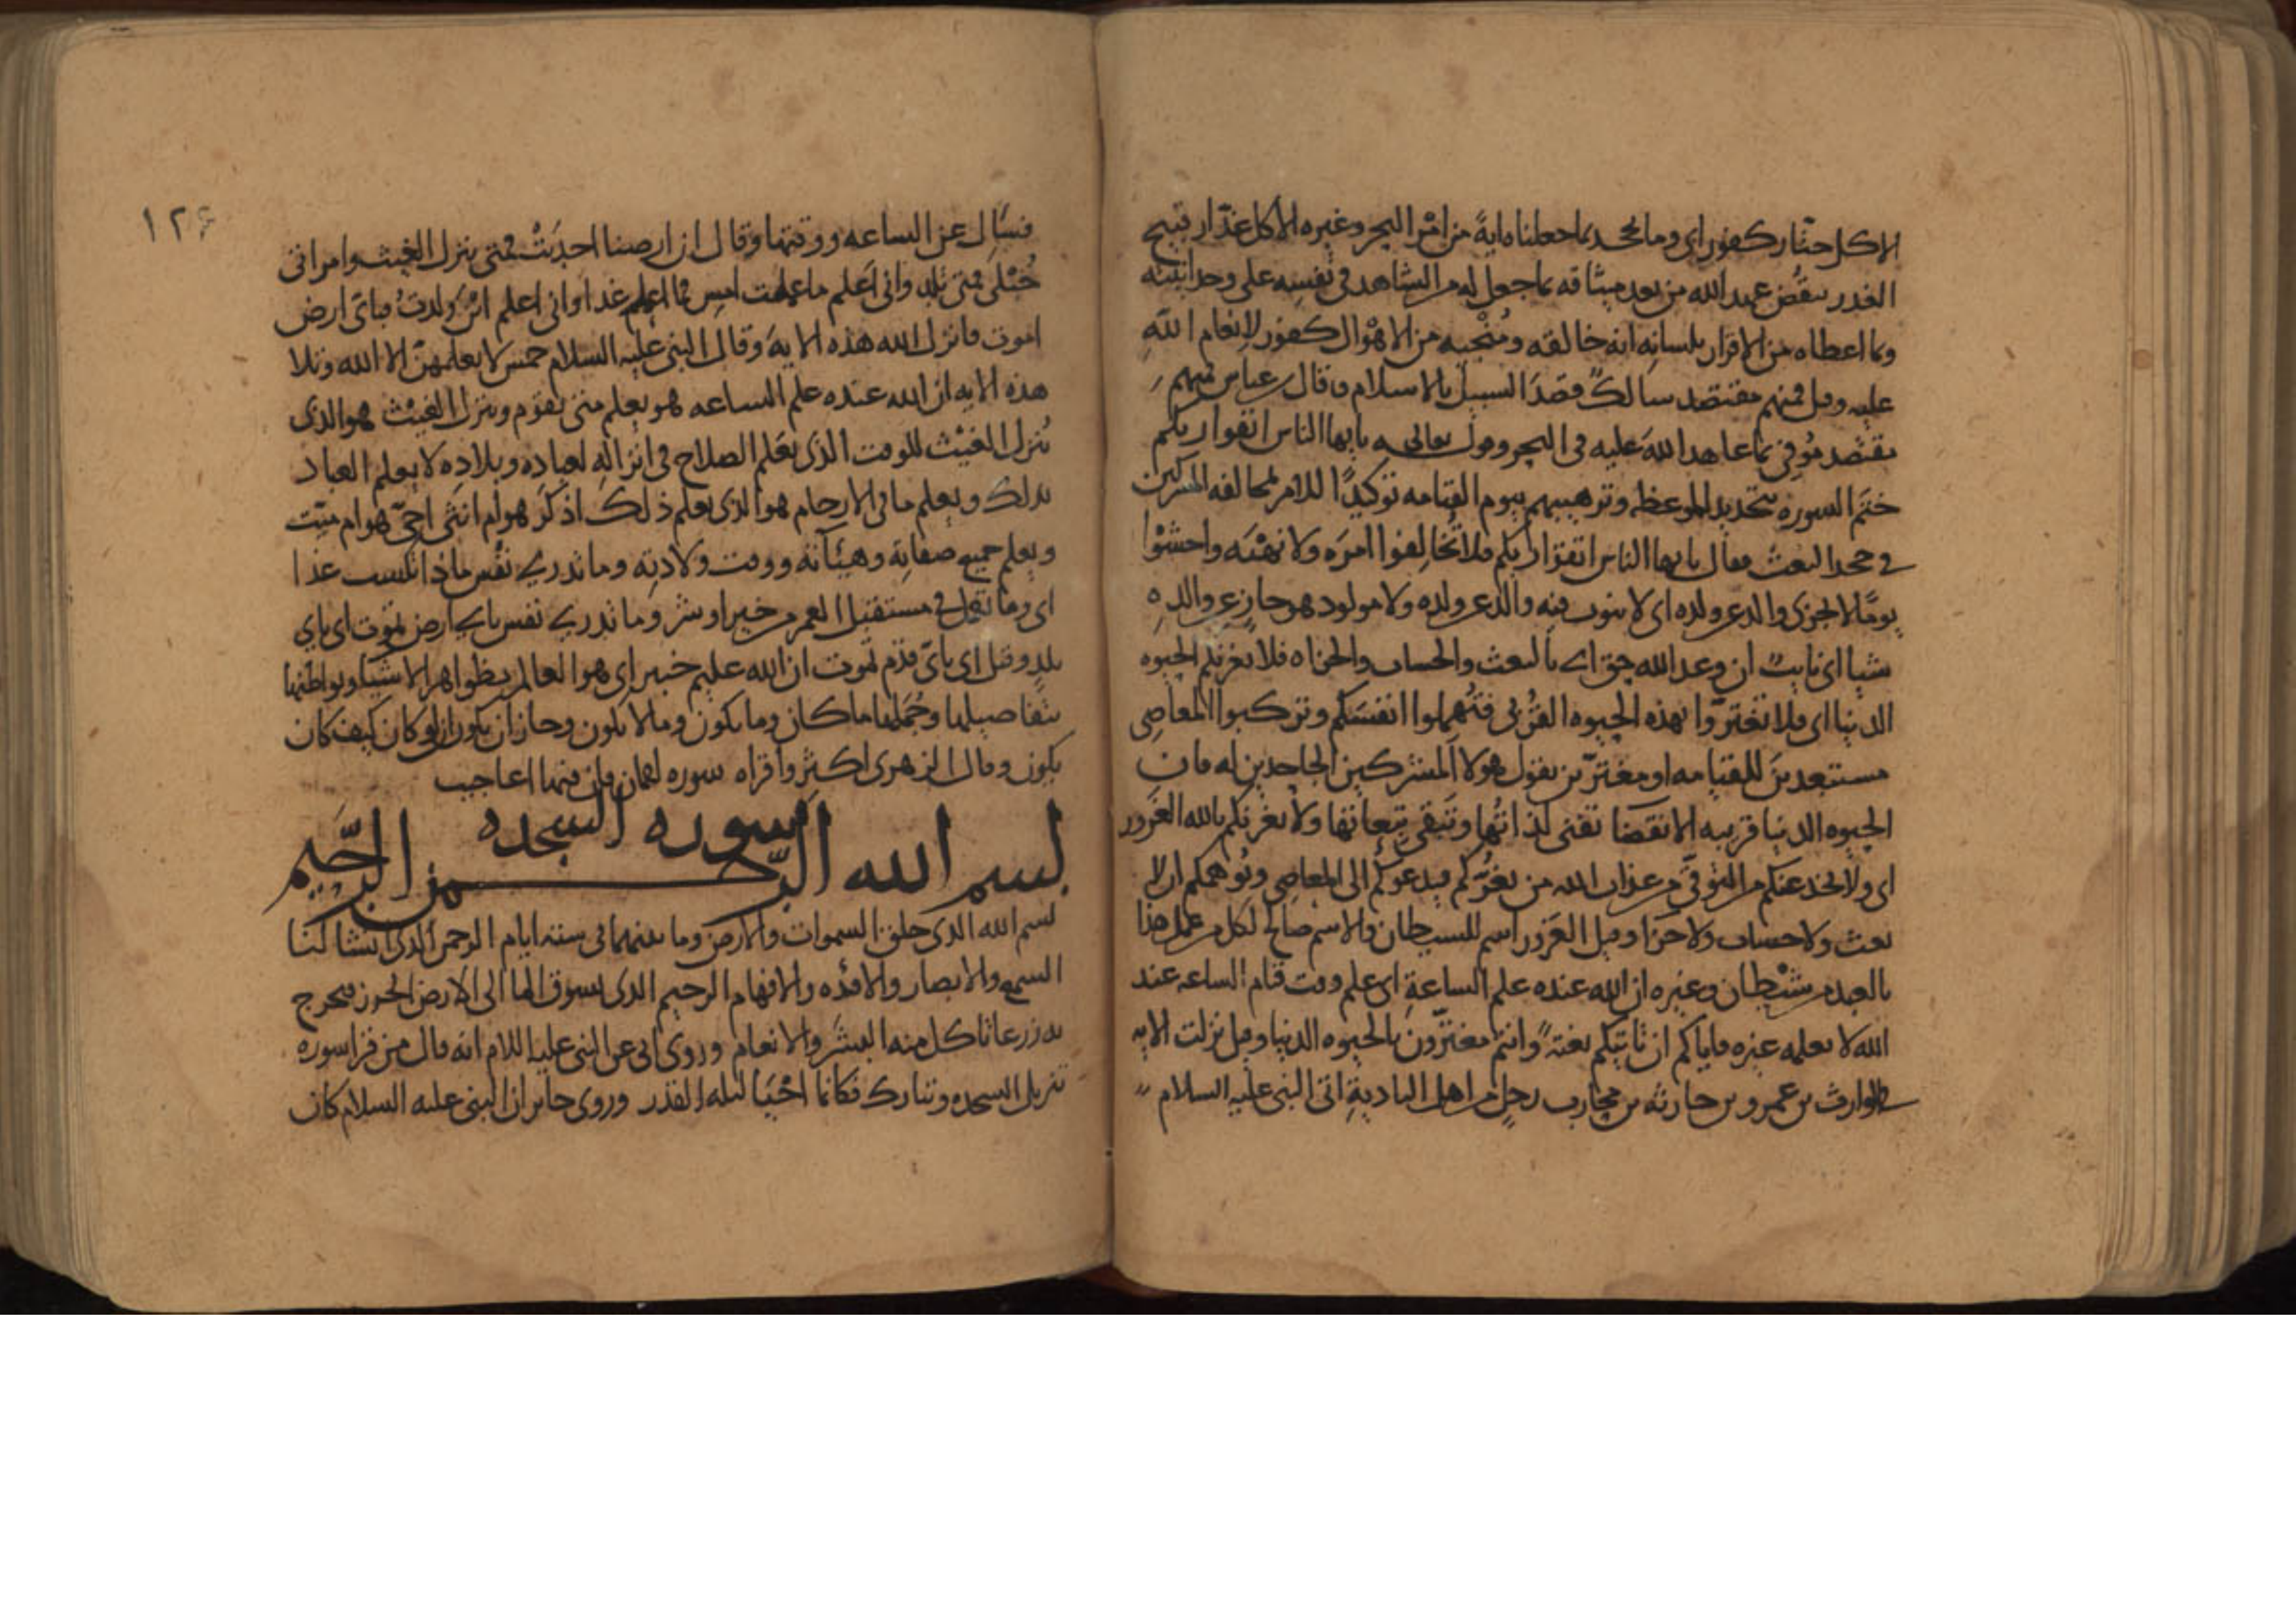 الا كل ختار كفور اى وما يجحد بما جعلناه اية من امر البحر وغيره الا كل غدار قبيح
الغدر ينقض عهد الله من بعد ميثاقه بما جعل له من الشاهد فى نفسه على وحدانيته
وبما اعطاه من الاقرار بلسانه انه خالقه ومنجيه من الاهوال كفور لانعام الله
عليه وقيل فمنهم مقتصد سالك قصد السبيل بالاسلام وقال ابن عباس فمنهم
مقتصد موفى بما عاهد الله عليه فى البحر وقوله تعالى يا يها الناس اتقوا ربكم
ختم السوره بتجديد الموعظه وترهيبهم بيوم القيامه توكيدا للامر لمخالفه المشركين
فى جحد البعث فقال يا يها الناس اتقوا ربكم فلا تخالفوا امره ولا نهيه واخشوا
يوما لا يجزى والد عن ولده اى لا ينوب فيه والد عن ولده ولا مولود هو جاز عن والده
شيا اى نايب ان وعد الله حق اى بالبعث والحساب والجزاه فلا تغرنكم الحيوه
الدنيا اى فلا تغتروا بهذه الحيوه القربى فتهملوا انفسكم وتركبوا المعاصى
مستبعدين للقيامه او مغترين بقول هولا المشركين الجاحدين له فان
الحيوه الدنيا قريبه الانقضا تفنى لذاتها وتبقى تبعاتها ولا يغرنكم بالله الغرور
اى ولا يخدعنكم من التوقى من عذاب الله من يغركم فيدعوكم الى المعاصى ويوهمكم ان لا
بعث ولا حساب ولا جزا وقيل الغرور اسم للشيطان والاسم صالح لكل من عمل هذا
بالعبد من شيطان وغيره ان الله عنده علم الساعة اى علم وقت قيام الساعه عند
الله لا يعلمه غيره فاياكم ان تاتيكم بغتة وانتم مغترون بالحيوه الدنيا وقيل نزلت الايه
فى الوارث بن عمرو بن حارثه بن محارب رجل من اهل البادية اتى النبى عليه السلام
١٢٤
فسال عن الساعه ووقتها وقال ان ارضنا اجدبت فمتى ينزل الغيث وامراتى
حبلى فمتى تلد وانى اعلم ما عملت امس فما اعمل غدا وانى اعلم اين ولدت فباى ارض
اموت فانزل الله هذه الايه وقال النبى عليه السلام خمس لا يعلمهن الا الله وتلا
هذه الايه ان الله عنده علم الساعه هو يعلم متى تقوم وينزل الغيث هو الذى
ينزل الغيث للوقت الذى يعلم الصلاح فى انزاله لعباده وبلاده لا يعلم العباد
ذلك ويعلم ما فى الارحام هو الذى يعلم ذلك اذكر هو ام انثى احى هو ام ميت
ويعلم جميع صفاته وهيئآته ووقت ولادته وما تدرى نفس ماذا تكسب غدا
اى وما تعمل فى مستقبل العمر من خير او شر وما تدرى نفس باى ارض تموت اى باى
بلد وقيل اى باى قدم تموت ان الله عليم خبير اى هو العالم بظواهر الاشيا وبواطنها
بتفاصيلها وجملها ما كان وما يكون وما لا يكون وجاز ان يكون ان لو كان كيف كان
يكون وقال الزهرى اكثروا قراه سوره لقمان فان فيها اعاجيب
سوره السجده
بسم الله الرحمن الرحيم
بسم الله الذى خلق السموات والارض وما بينهما فى سته ايام الرحمن الذى انشا لنا
السمع والابصار والافئده والافهام الرحيم الذى يسوق الما الى الارض الجرز فيخرج
به زرعا تاكل منه البشر والانعام وروى ابى عن النبى عليه السلام انه قال من قرا سوره
تنزيل السجده وتبارك فكانما احيا ليله القدر وروى جابر ان النبى عليه السلام كان